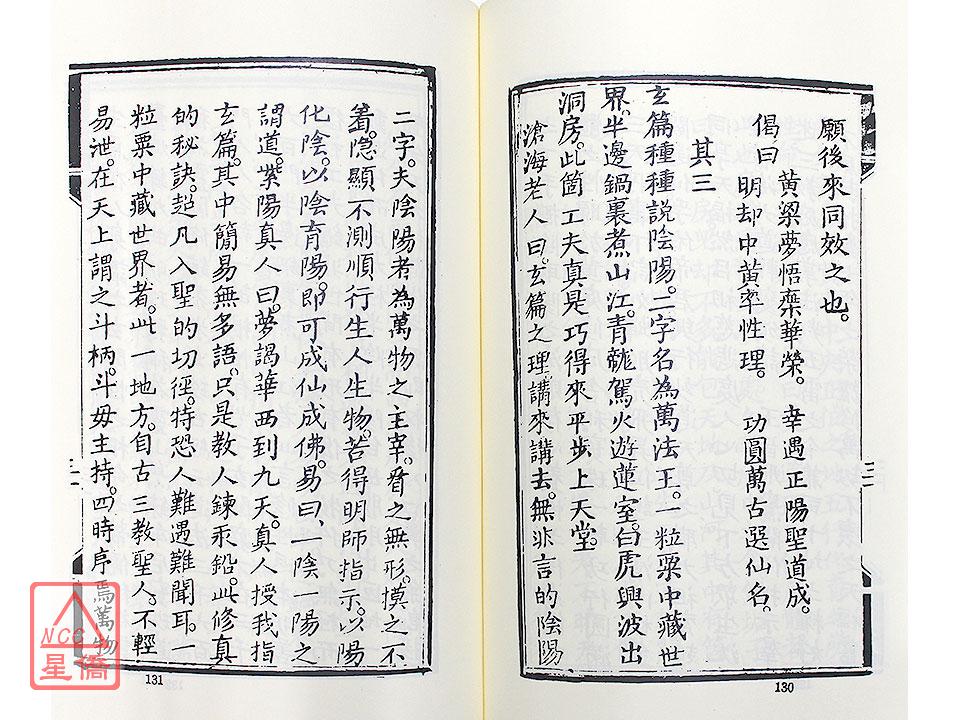 願後來同效之也。
黃粱夢悟棄華榮。 幸遇正陽聖道成。
偈曰
明却中黃率性理。 功圓萬古選仙名。
其三
玄篇種種說陰陽。二字名為萬法王。一粒粟中藏世
界。半邊鍋裏煮山江。青龍駕火遊蓮室。白虎興波出
洞房。此箇工夫真是巧得來平步上天堂。
滄海老人曰。玄篇之理。講來講去。無非言的陰陽
130
二字。夫陰陽者為萬物之主宰。看之無形。摸之不
着。隱顯不測順行生人生物。若得明師指示。以陽
化陰。以陰育陽。即可成仙成佛。易曰、一陰一陽之
謂道。紫陽真人曰。夢謁華西到九天。真人授我指
玄篇。其中簡易無多語。只是教人鍊汞鉛。此修真
的秘訣。超凡入聖的切徑。特恐人難遇難聞耳。一
粒粟中藏世界者。此一地方。自古三教聖人。不輕
易泄。在天上謂之斗柄。斗母主持。四時序焉萬物
131
NCC
星僑